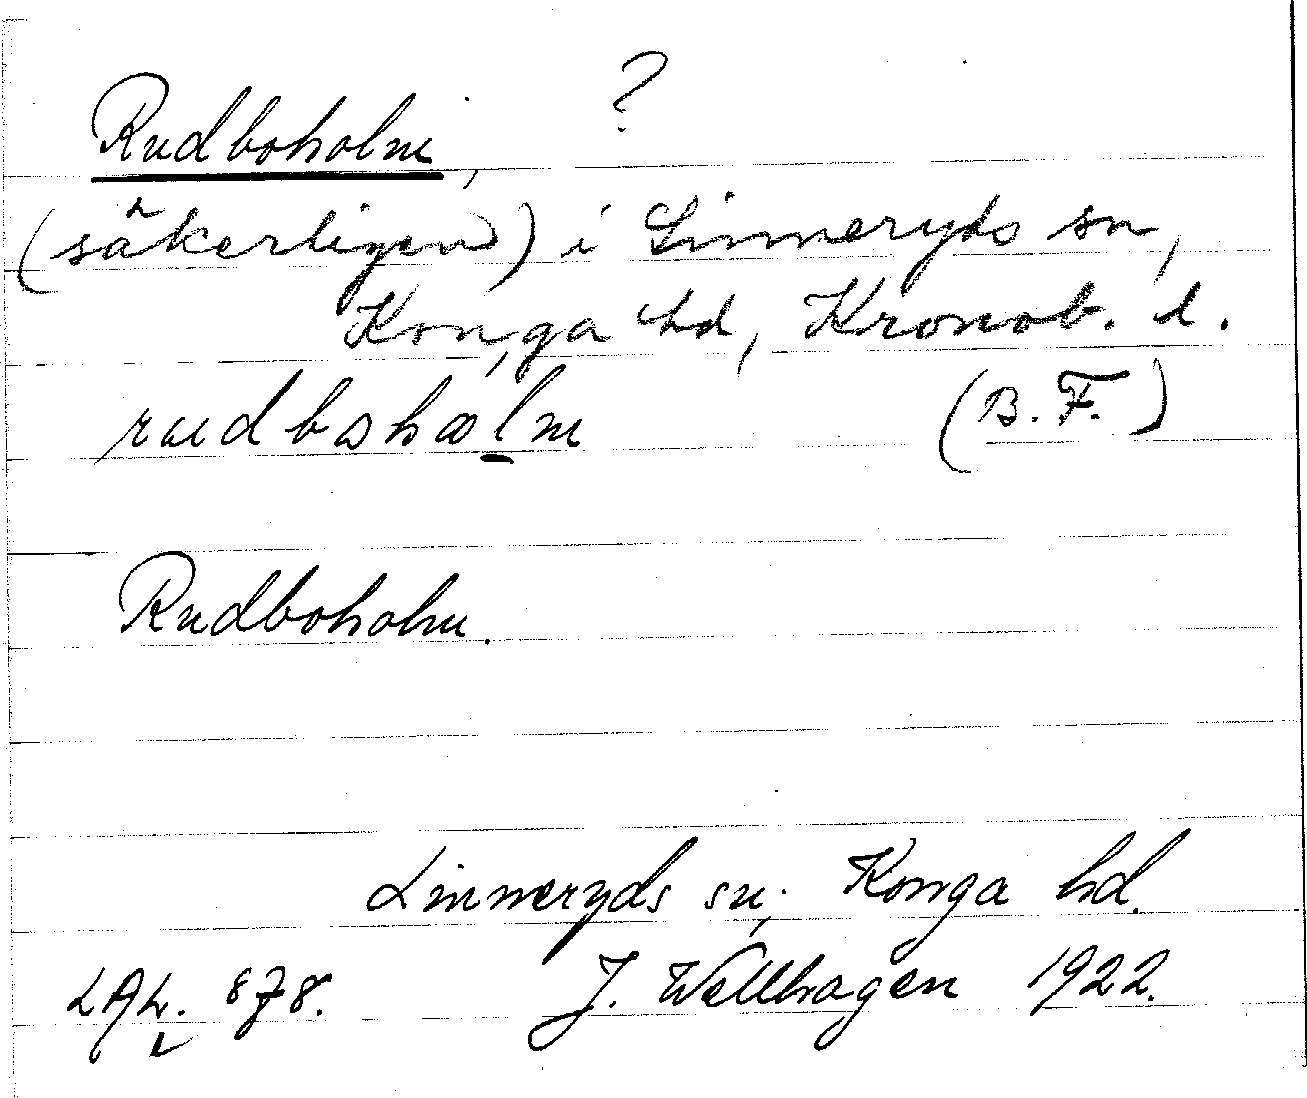 Rudboholm, ?
(säkerligen) i Linneryds sn,
Konga hd, Kronob. l.
rudboholm (B.F.)
Rudboholm.
Linneryds sn; Konga hd.
LAL. 878. J. Wellhagen 1922.